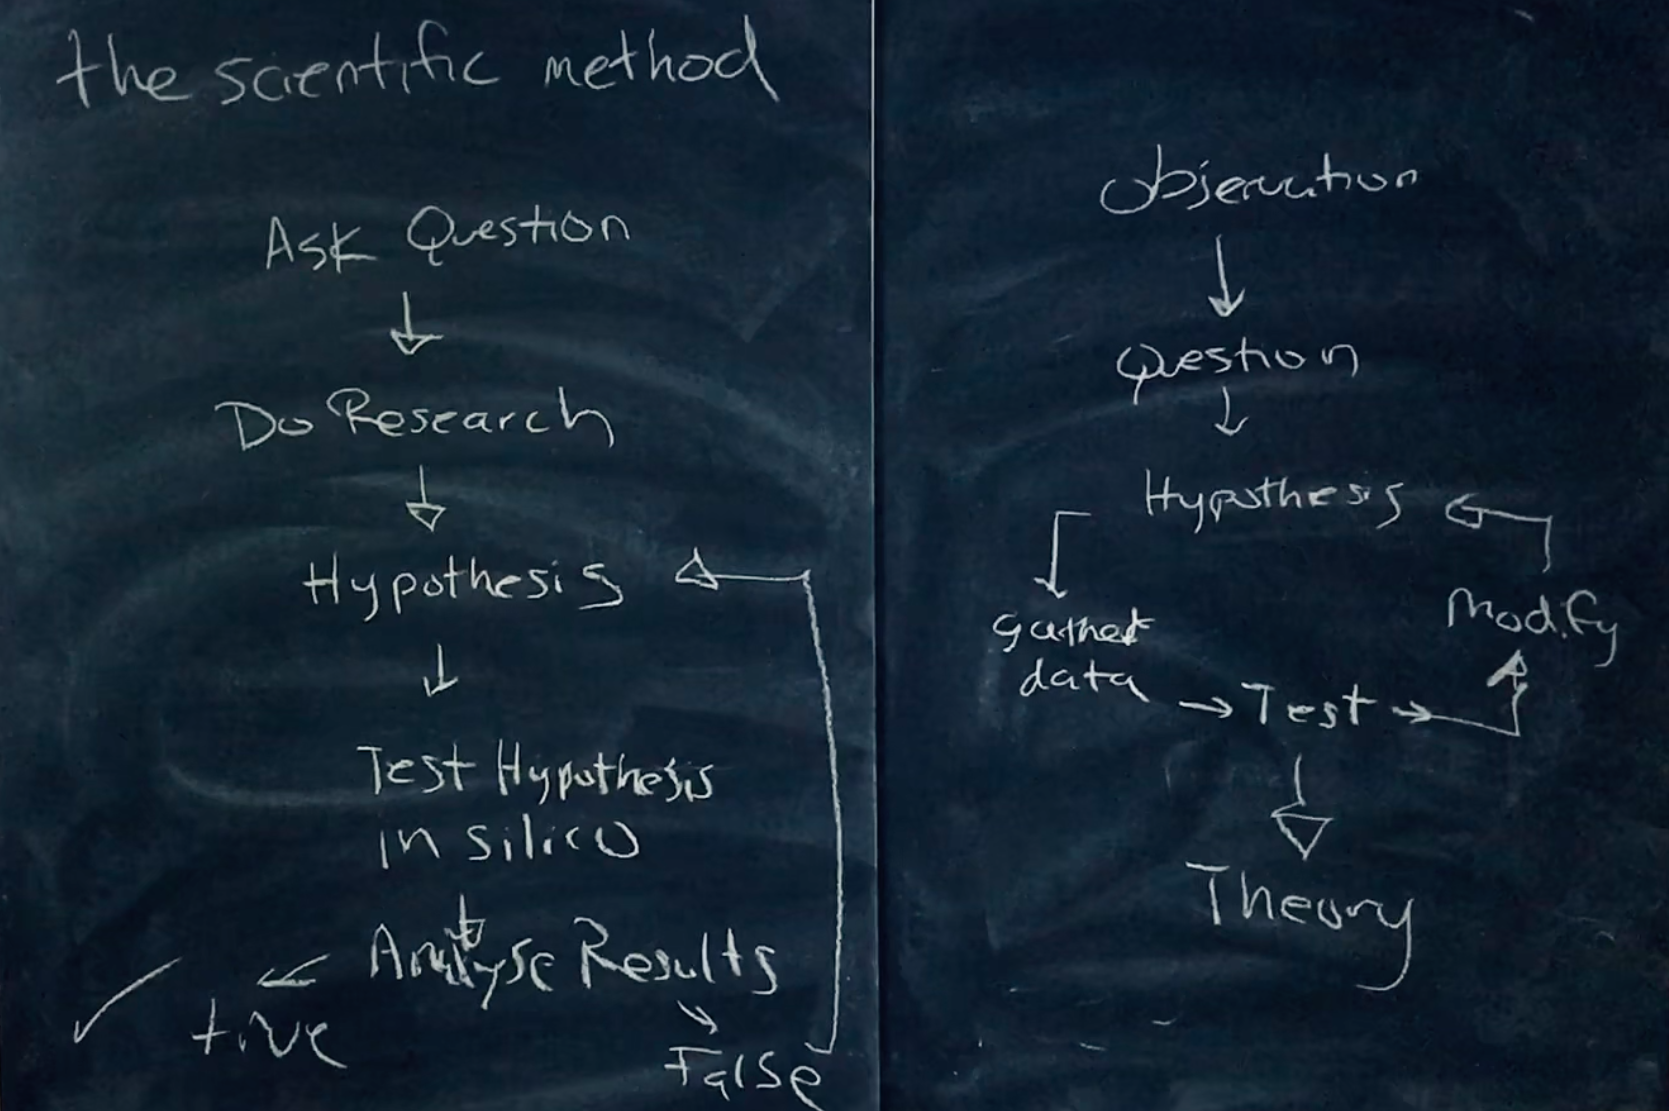 the scientific method
Ask Question
Do Research
Hypothesis
Test Hypothesis
in silico
Analyse Results
+ive
False
Observation
Question
Hypothesis
gather
data
Test
Modify
Theory